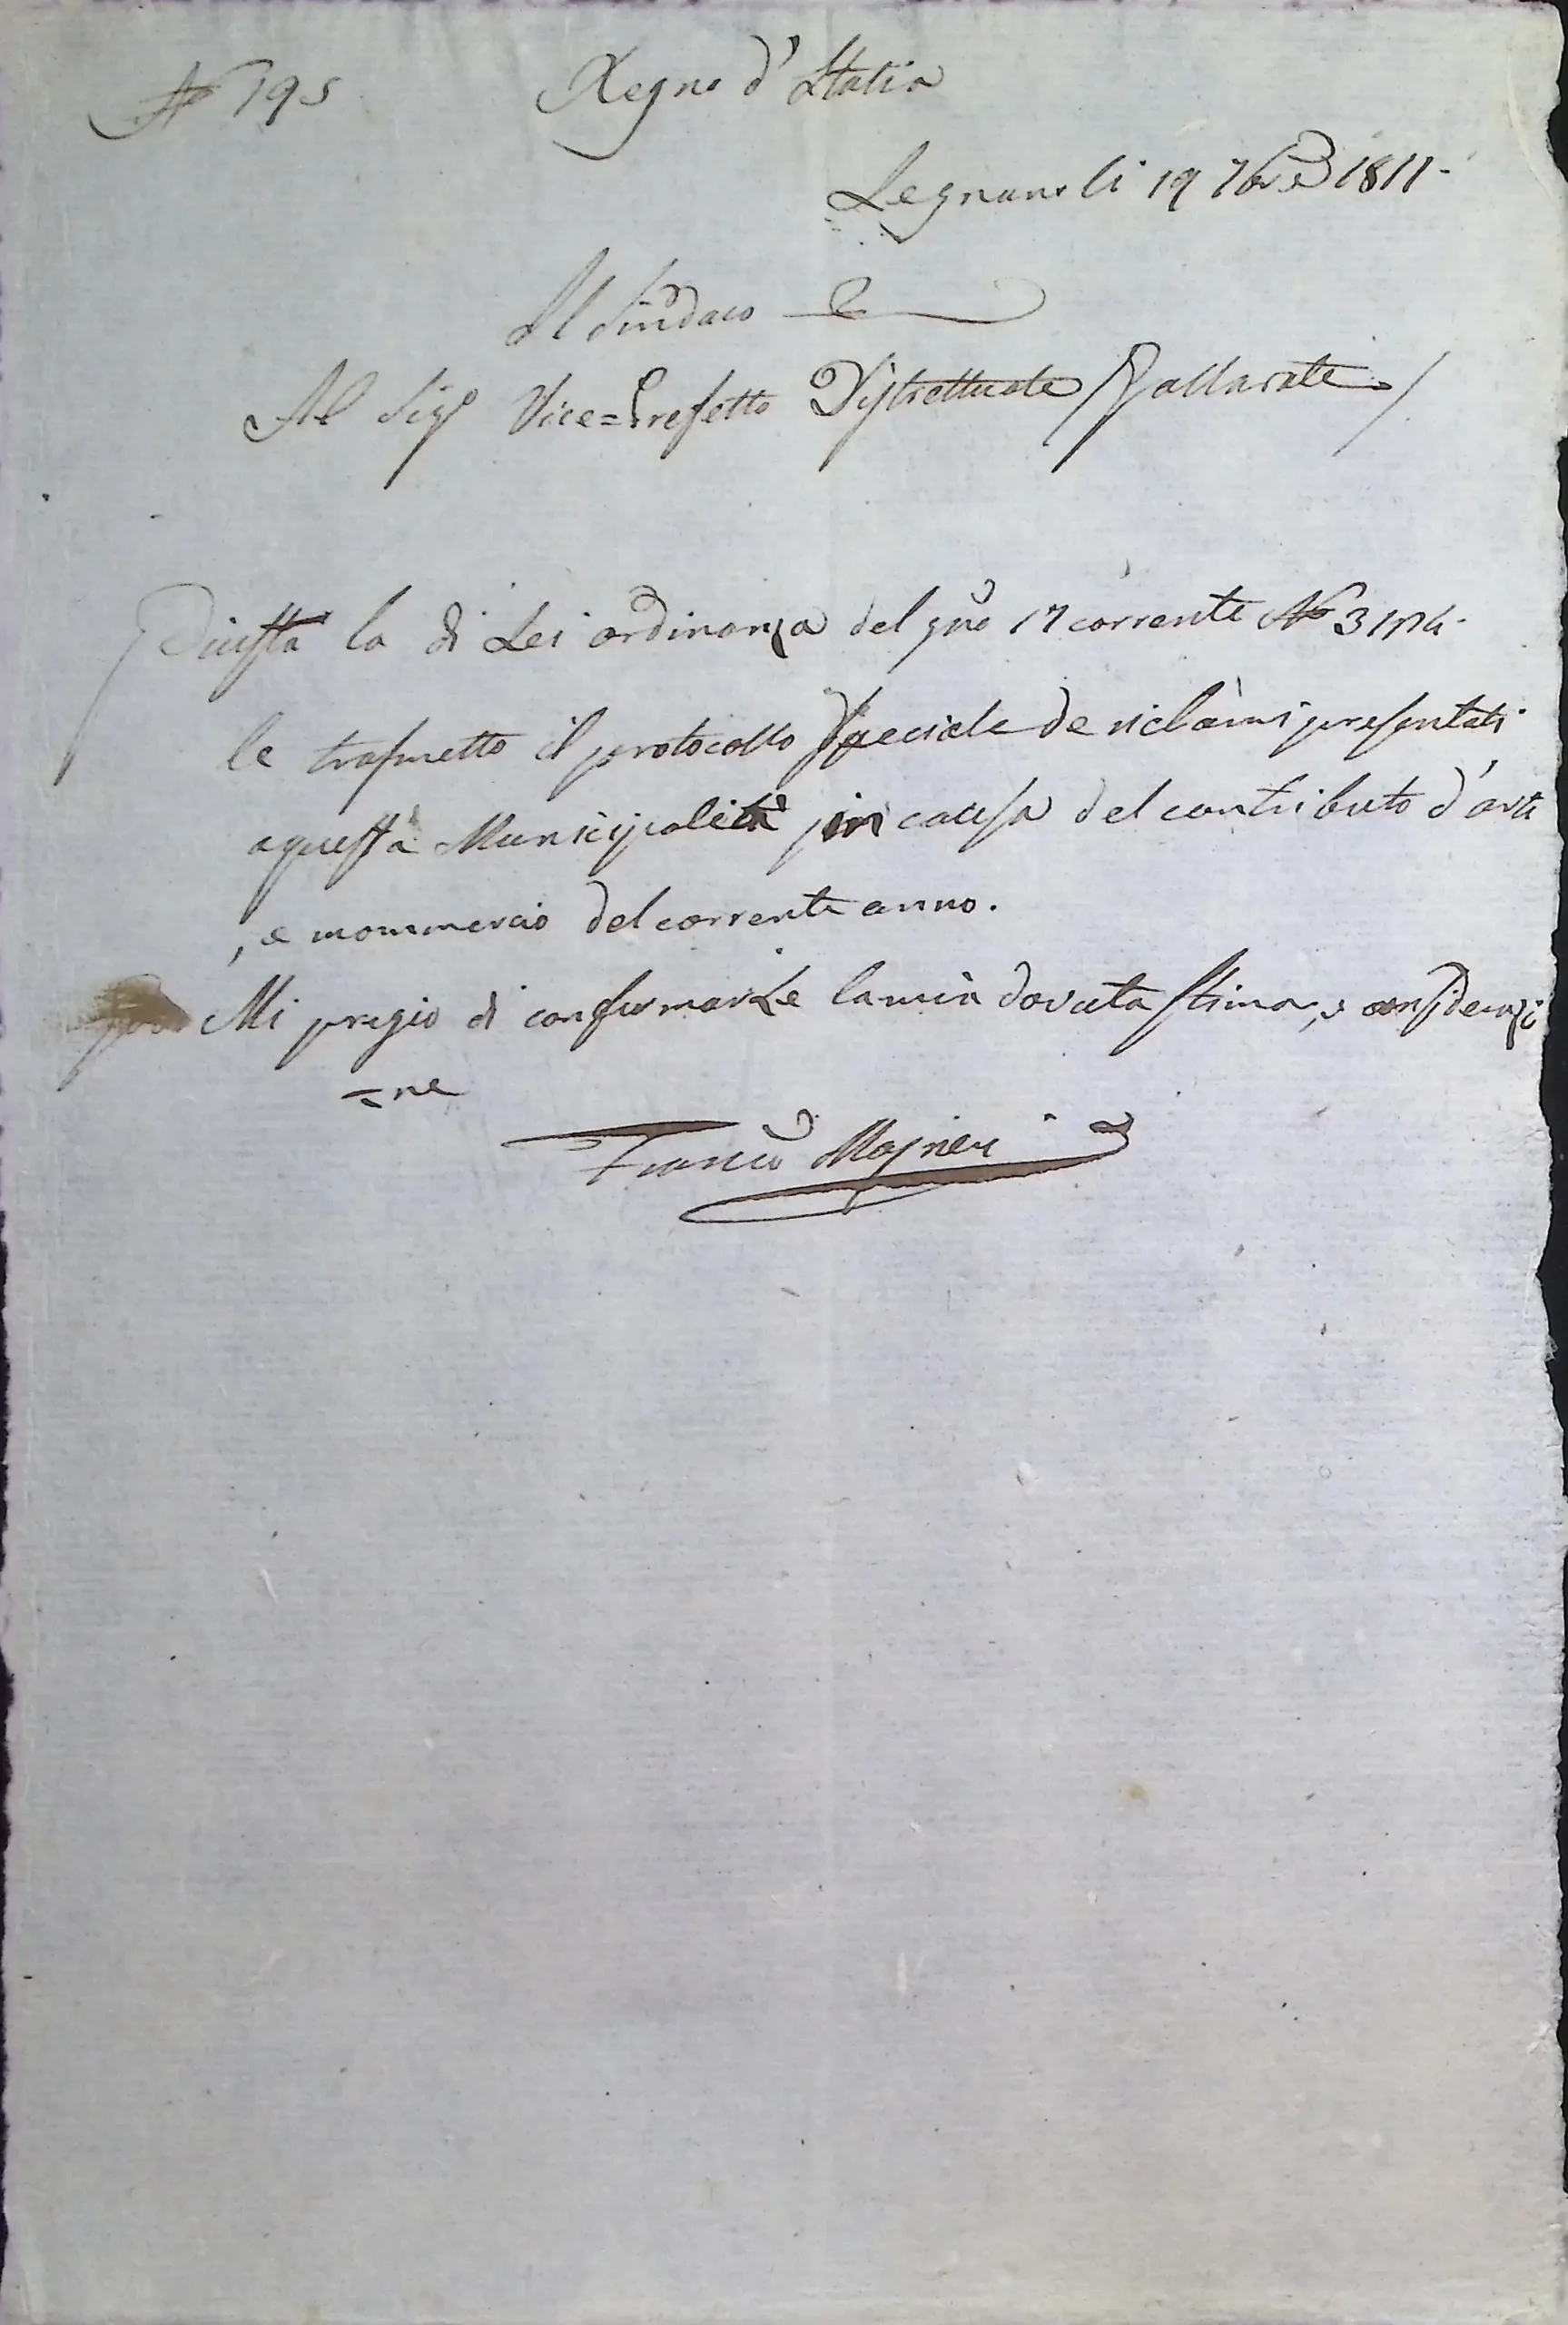 N° 195 Regno d'Italia
Legnano li 19 7bre 1811.
Il Sindaco
Al Sigr Vice=Prefetto Distrettuale Gallarate
Giusta la di Lei ordinanza del gno 17 corrente N°
le trasmetto il protocollo speciale de riclami presentati
a questa Municipalità in causa del contributo d'arti
, e mommercio del corrente anno.
Mi pregio di confermarLe la mia dovuta stima, e considerazi
=ne
Franco